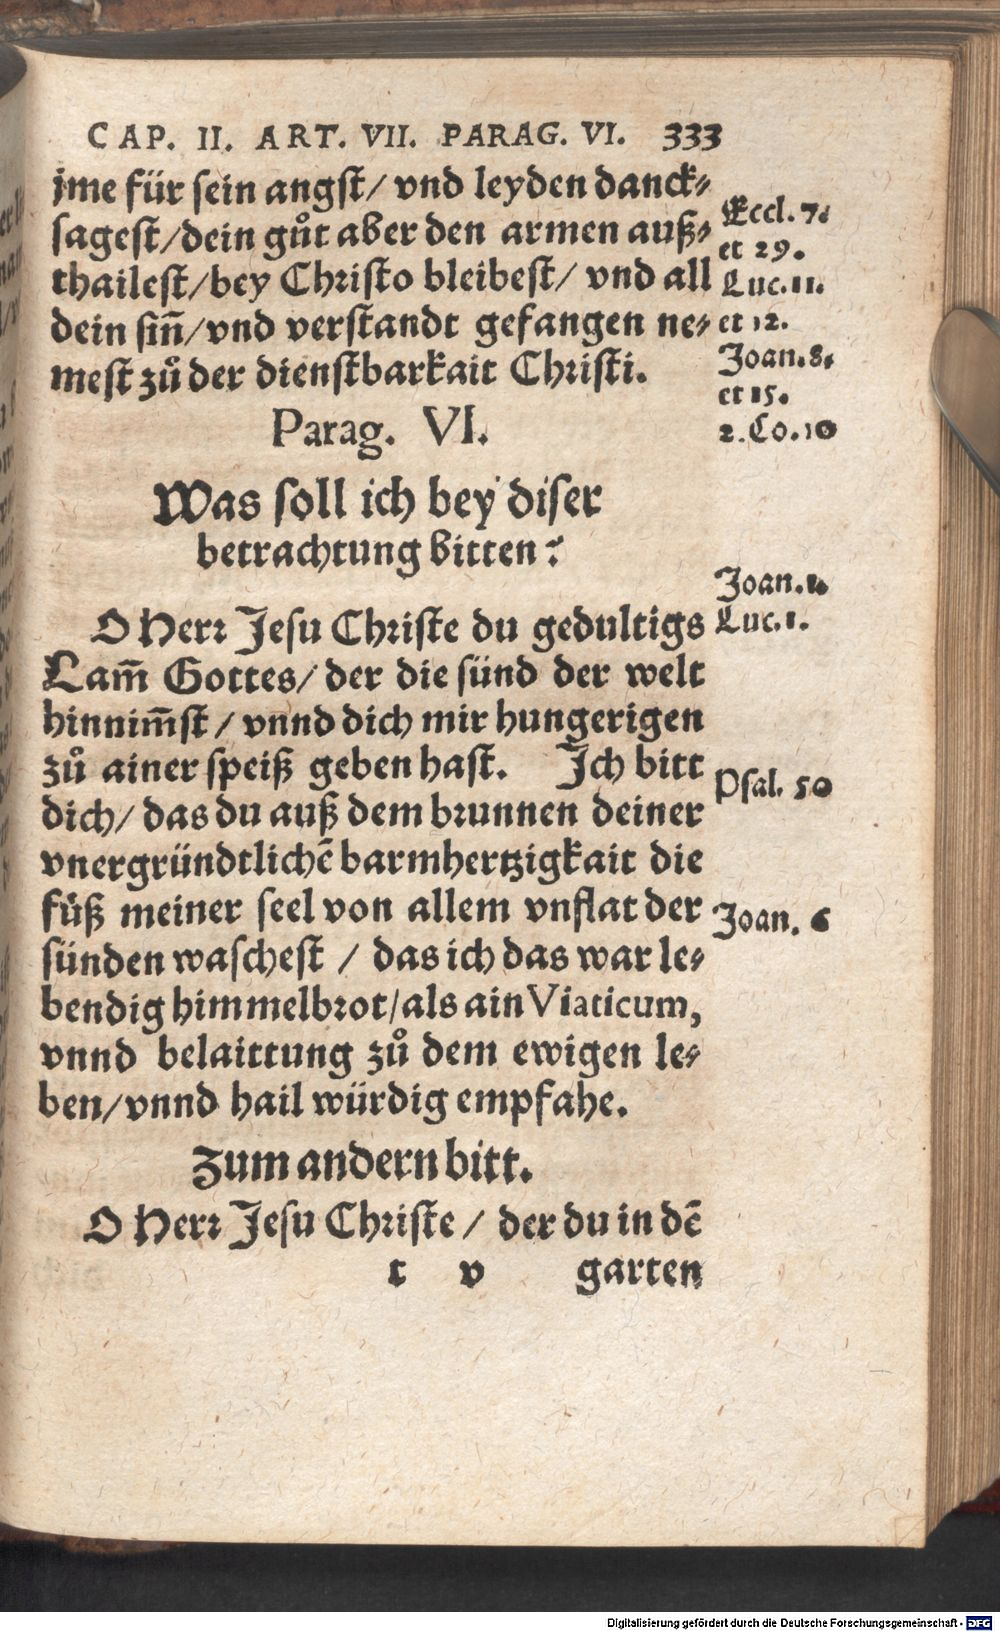 CAP. II. ART. VII. PARAG. VI. 333
jme für sein angst/ vnd leyden danck⸗
sagest/dein gůt aber den armen auß⸗
thailest/bey Christo bleibest/ vnd all
dein sin̄/vnd verstandt gefangen ne⸗
mest zů der dienstbarkait Christi.
Eccl. 7.
et 29.
Luc. 11.
et 12.
Joan. 8.
et 15.
2. Co. 10
Parag. VI.
Was soll ich bey diser
betrachtung bitten?
O Herr Jesu Christe du gedultigs
Lam̄ Gottes/ der die sünd der welt
hinnim̄st / vnnd dich mir hungerigen
zů ainer speiß geben hast. Ich bitt
dich/ das du auß dem brunnen deiner
vnergründtlichē barmhertzigkait die
füß meiner seel von allem vnflat der
sünden waschest / das ich das war le⸗
bendig himmelbrot/als ain Viaticum,
vnnd belaittung zů dem ewigen le⸗
ben/vnnd hail würdig empfahe.
Joan. 1.
Luc. 1.
Psal. 50
Joan. 6
Zum andern bitt.
O Herr Jesu Christe / der du in dē
t v garten
Digitalisierung gefördert durch die Deutsche Forschungsgemeinschaft - DFG